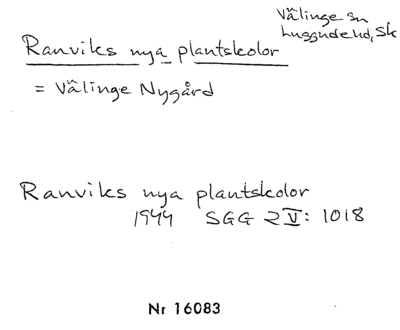 Välinge sn
Luggude hd, Sk
Ranviks nya plantskolor
= Välinge Nygård
Ranviks nya plantskolor
1944 SGG 2 V: 1018
Nr 16083